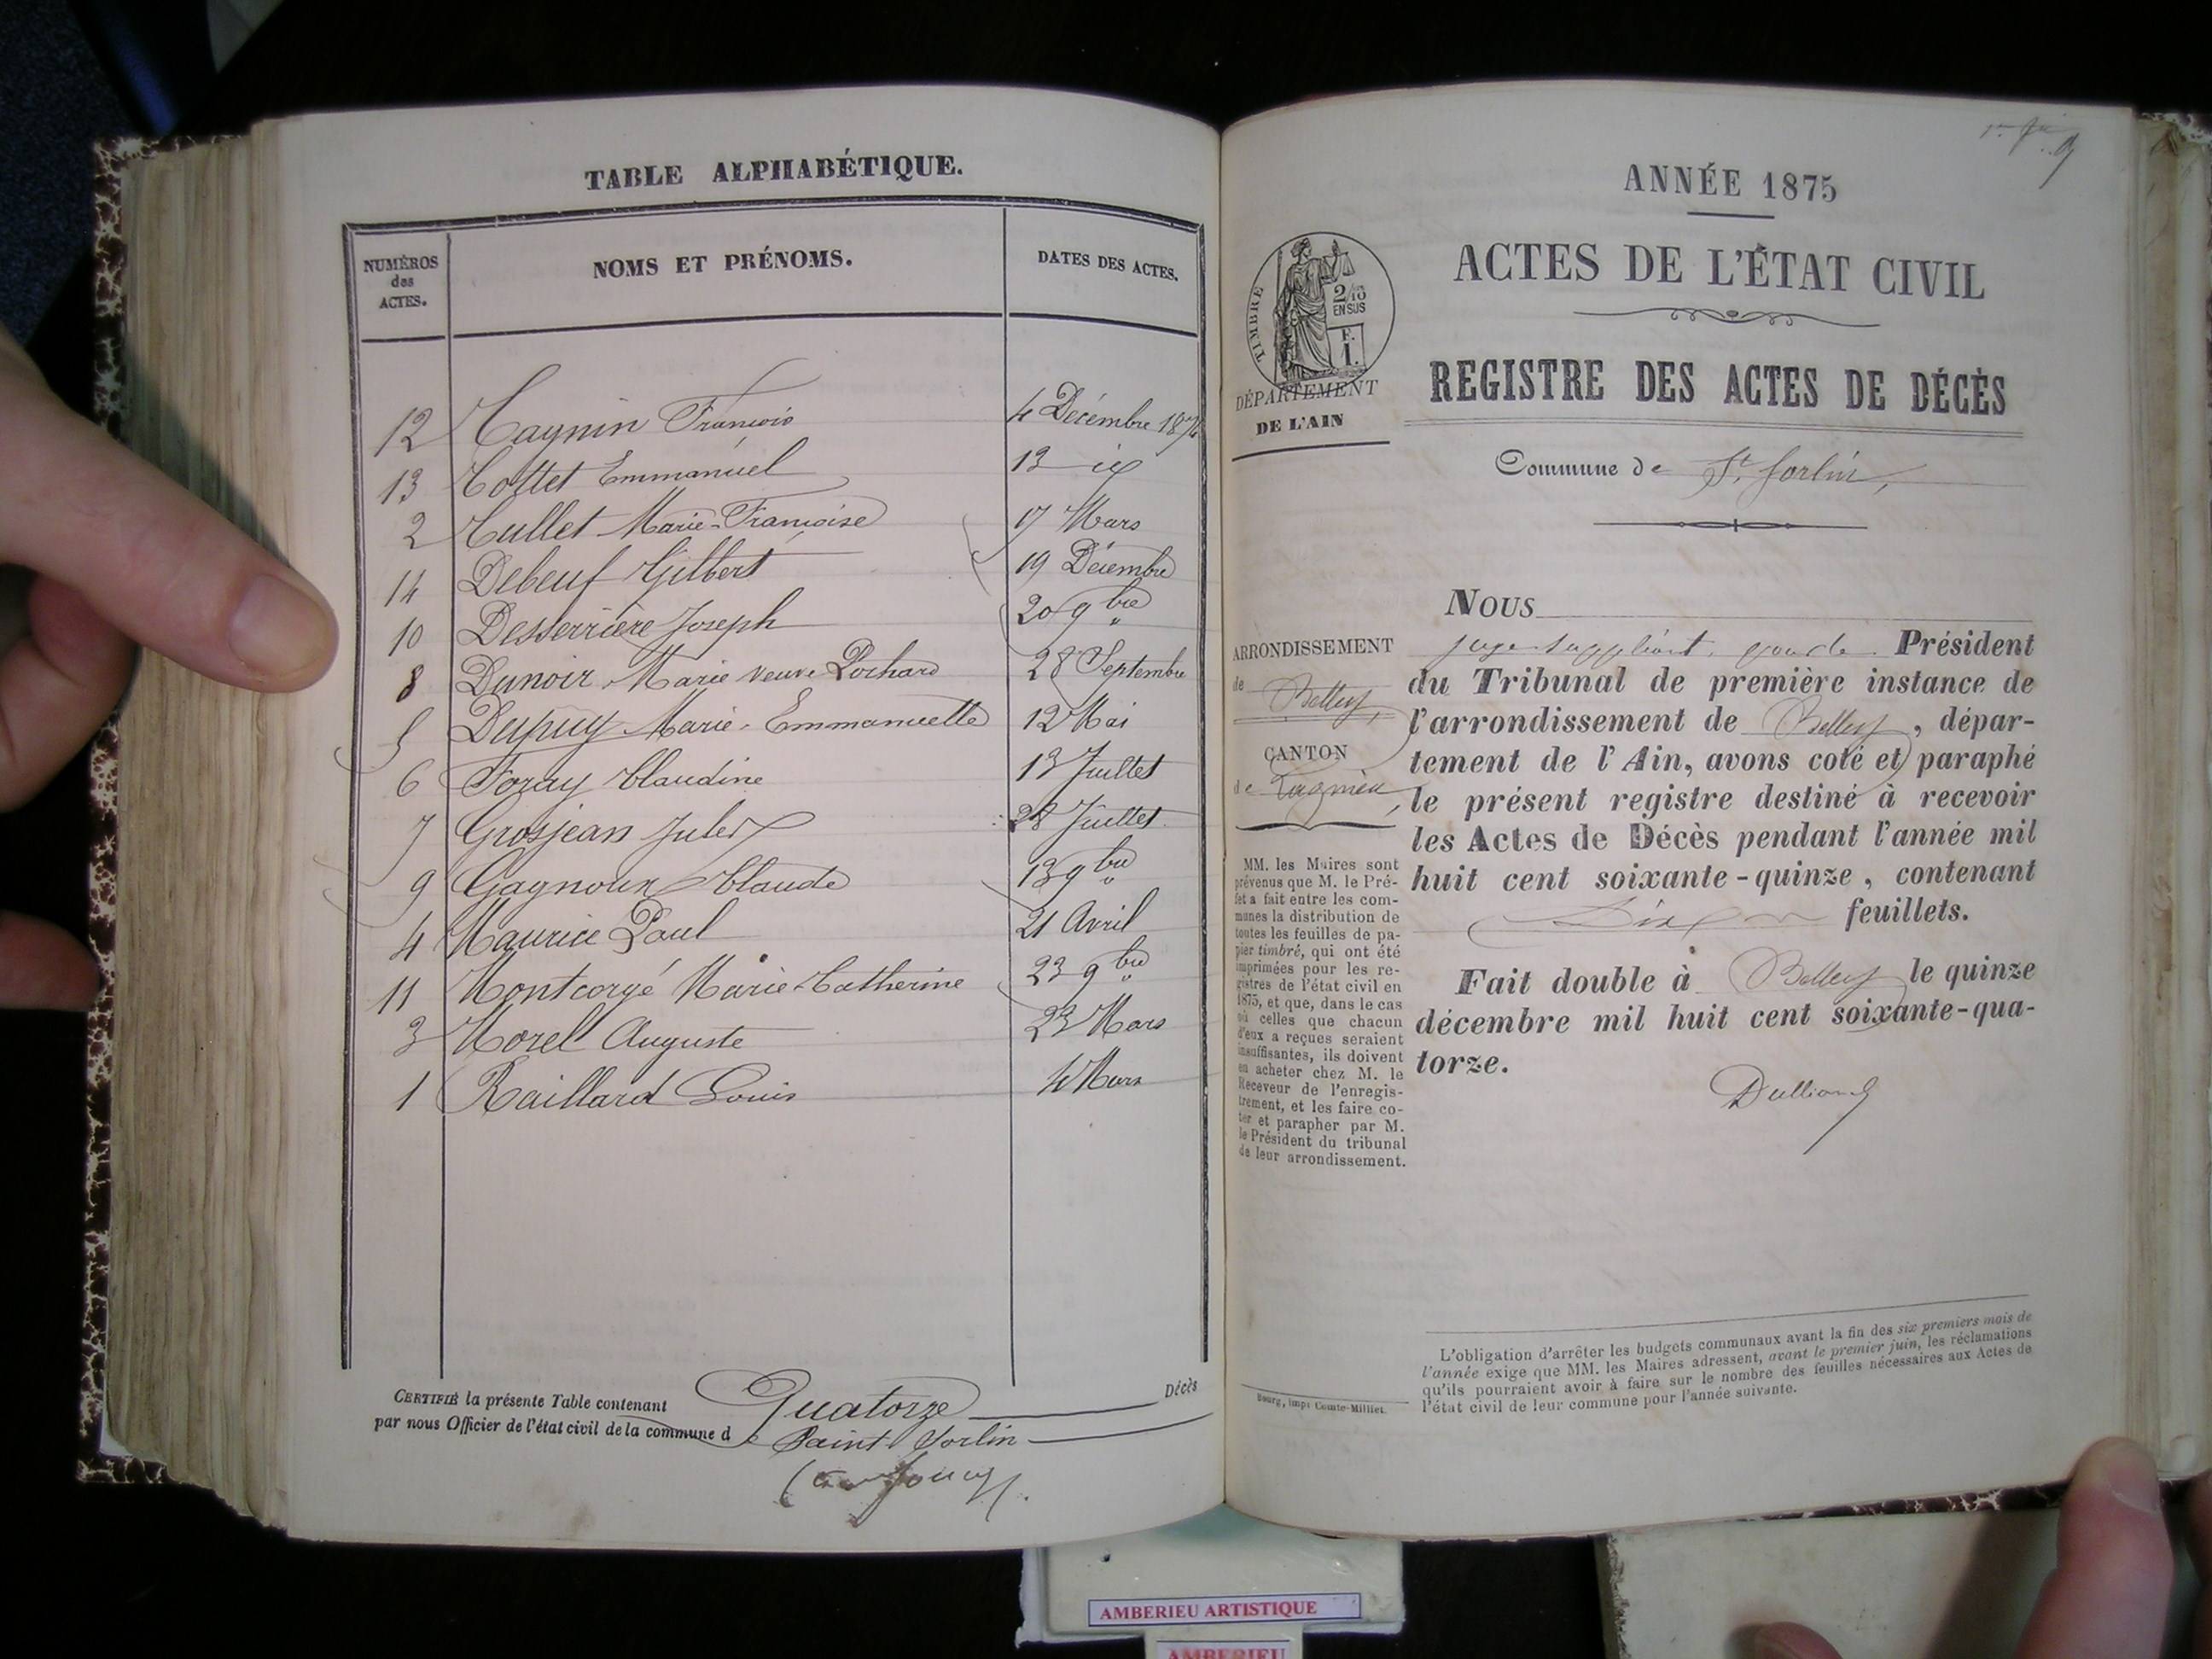 TABLE ALPHABÉTIQUE.
NUMÉROS des ACTES.
NOMS ET PRÉNOMS.
DATES DES ACTES.
12 Caynin François 4 Décembre 1874
13 Cottet Emmanuel 13 id
2 Cullet Marie-Françoise 17 Mars
14 Debeuf Gilbert 19 Décembre
10 Desserrière Joseph 20 9bre
8 Dunoir Marie veuve Pochard 28 Septembre
5 Dupuy Marie-Emmanuelle 12 Mai
6 Foray Claudine 13 Juillet
7 Grosjean Jules 28 Juillet
9 Gagnoux Claude 13 9bre
4 Maurice Paul 21 Avril
11 Montcorgé Marie-Catherine 23 9bre
3 Morel Auguste 23 Mars
1 Raillard Louis 4 Mars
CERTIFIÉ la présente Table contenant Quatorze Décès
par nous Officier de l'état civil de la commune de Saint Sorlin
ANNÉE 1875
ACTES DE L'ÉTAT CIVIL
TIMBRE
2/10
EN SUS
F.
1.
DÉPARTEMENT
DE L'AIN
REGISTRE DES ACTES DE DÉCÈS
Commune de St Sorlin,
ARRONDISSEMENT
de Belley,
CANTON
de Lagnieu,
MM. les Maires sont
prévenus que M. le Pré-
fet a fait entre les com-
munes la distribution de
toutes les feuilles de pa-
pier timbré, qui ont été
imprimées pour les re-
gistres de l'état civil en
1875, et que, dans le cas
où celles que chacun
d'eux a reçues seraient
insuffisantes, ils doivent
en acheter chez M. le
Receveur de l'enregis-
trement, et les faire co-
ter et parapher par M.
le Président du tribunal
de leur arrondissement.
Bourg, imp. Comte-Milliet.
NOUS
juge suppléant, pour le Président
du Tribunal de première instance de
l'arrondissement de Belley, dépar-
tement de l'Ain, avons coté et paraphé
le présent registre destiné à recevoir
les Actes de Décès pendant l'année mil
huit cent soixante-quinze, contenant
Six feuillets.
Fait double à Belley le quinze
décembre mil huit cent soixante-qua-
torze.
L'obligation d'arrêter les budgets communaux avant la fin des six premiers mois de
l'année exige que MM. les Maires adressent, avant le premier juin, les réclamations
qu'ils pourraient avoir à faire sur le nombre des feuilles nécessaires aux Actes de
l'état civil de leur commune pour l'année suivante.
AMBERIEU ARTISTIQUE
AMBERIEU